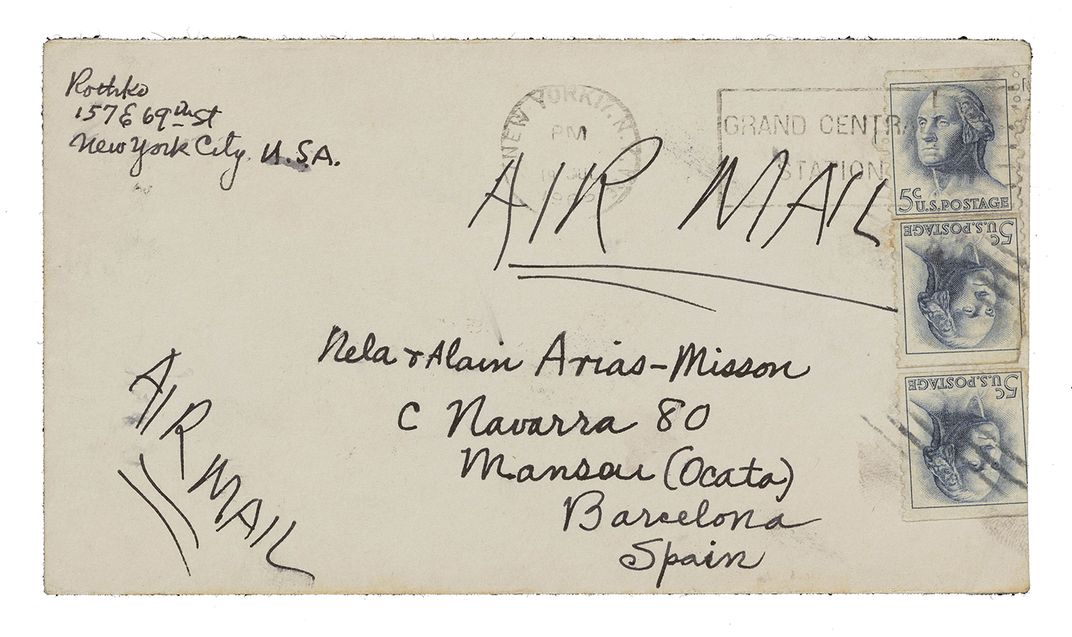 Rothko
157 E 69th St
New York City. U.S.A.
NEW YORK, N.Y.
PM
GRAND CENTR
STATION
AIR MAIL
5c U.S. POSTAGE
5c U.S. POSTAGE
5c U.S. POSTAGE
Nela & Alain Arias-Misson
C Navarra 80
Mansou (Ocata)
Barcelona
Spain
AIR MAIL